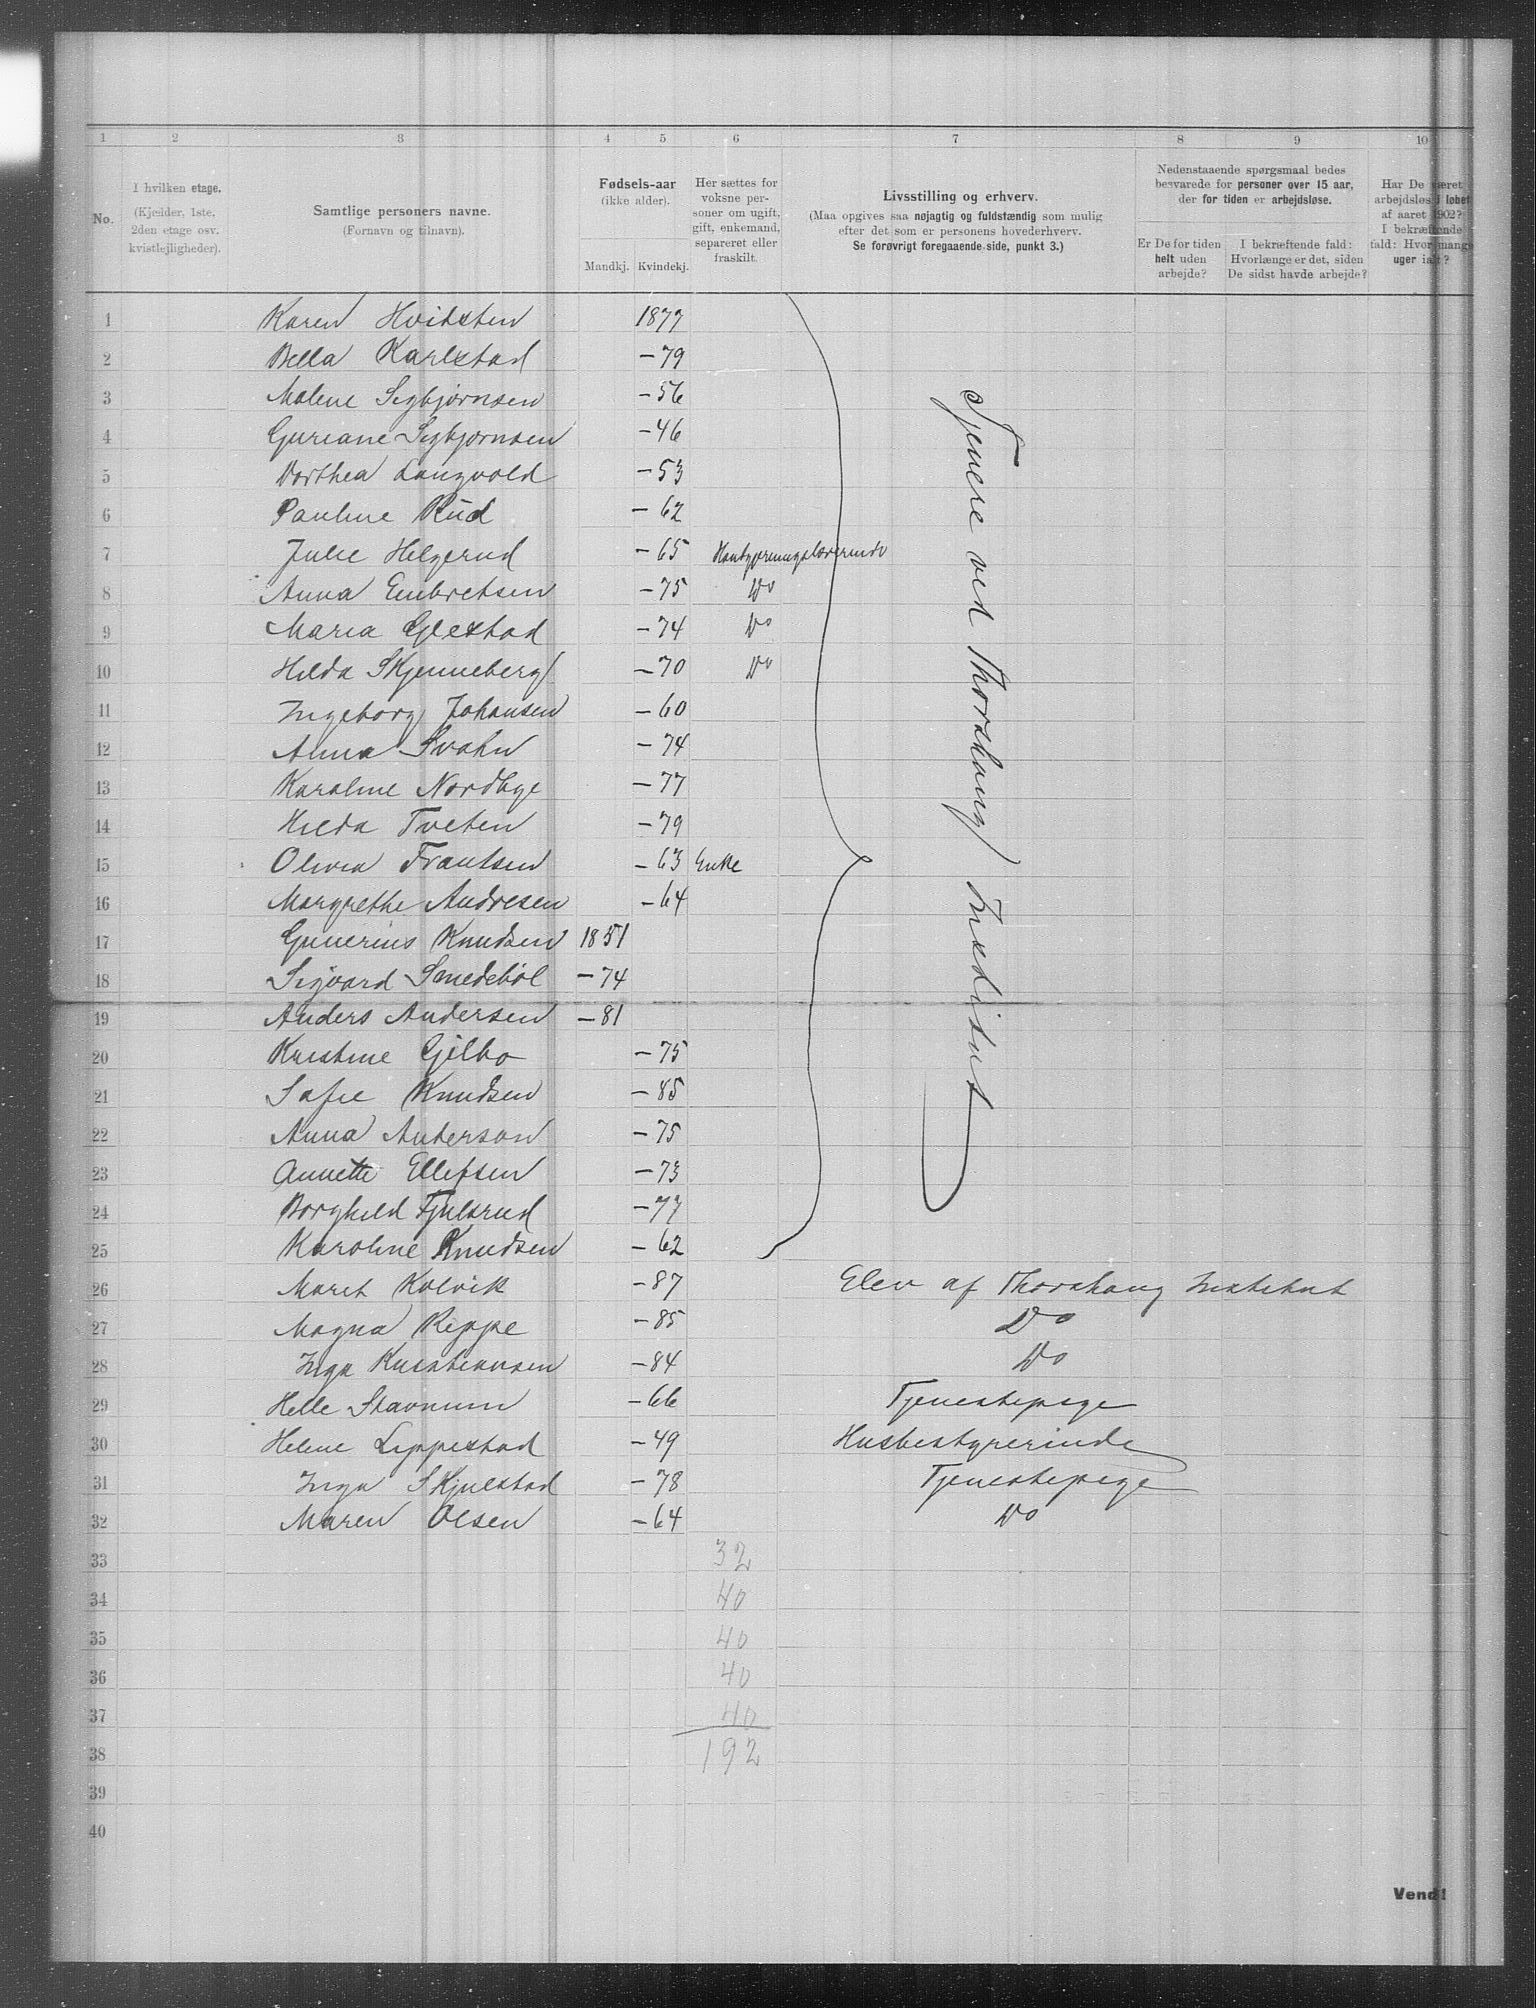 1 2 3 4 5 6 7 8 9 10
No.
I hvilken etage.
(Kjælder, 1ste, 2den etage osv. kvistlejligheder).
Samtlige personers navne.
(Fornavn og tilnavn).
Fødsels-aar
(ikke alder).
Mandkj. Kvindekj.
Her sættes for voksne personer om ugift, gift, enkemand, separeret eller fraskilt.
Livsstilling og erhverv.
(Maa opgives saa nøjagtig og fuldstændig som mulig
efter det som er personens hovederhverv.
Se forøvrigt foregaaende side, punkt 3.)
Nedenstaaende spørgsmaal bedes
besvarede for personer over 15 aar,
der for tiden er arbejdsløse.
Er De for tiden helt uden arbejde?
I bekræftende fald: Hvorlænge er det, siden De sidst havde arbejde?
Har De været arbejdsløs i løbet af aaret 1902? I bekræftende fald: Hvor mange uger ialt?
1 Karen Hvitsten 1877
2 Bella Karlstad – 79
3 Malene Sigbjørnsen – 56
4 Guriane Sigbjørnsen – 46
5 Dorthea Langvold – 53
6 Pauline Rud – 62
7 Julie Helgerud – 65 Haandgjerningslærerinde
8 Anna Embretsen – 75 Do
9 Maria Glestad – 74 Do
10 Hilda Skjenneberg – 70 Do
11 Ingeborg Johansen – 60
12 Anna Svahn – 74
13 Karoline Nordbye – 77
14 Hilda Tveten – 79
15 Olivia Frantsen – 63 Enke
16 Margrethe Andresen – 64
17 Gunerius Knudsen 1851
18 Sigvard Smedebøl – 74
19 Anders Andersen – 81
20 Kristine Gjelbo – 75
21 Sofie Knudsen – 85
22 Anna Anderson – 75
23 Annette Ellefsen – 73
24 Borghild Fjulsrud – 77
25 Karoline Knudsen – 62
Tjenere ved Thorshaug Institut
26 Maret Kolvik – 87 Elev af Thorshaug Institut
27 Magna Reppe – 85 Do
28 Inga Kristiansen – 84 Do
29 Helle Stavnum – 66 Tjenestepige
30 Helene Lippestad – 49 Husbestyrerinde
31 Inga Skjulstad – 78 Tjenestepige
32 Maren Olsen – 64 Do
33 32
34 40
35 40
36 40
37 40
38 192
39
40
Vend!